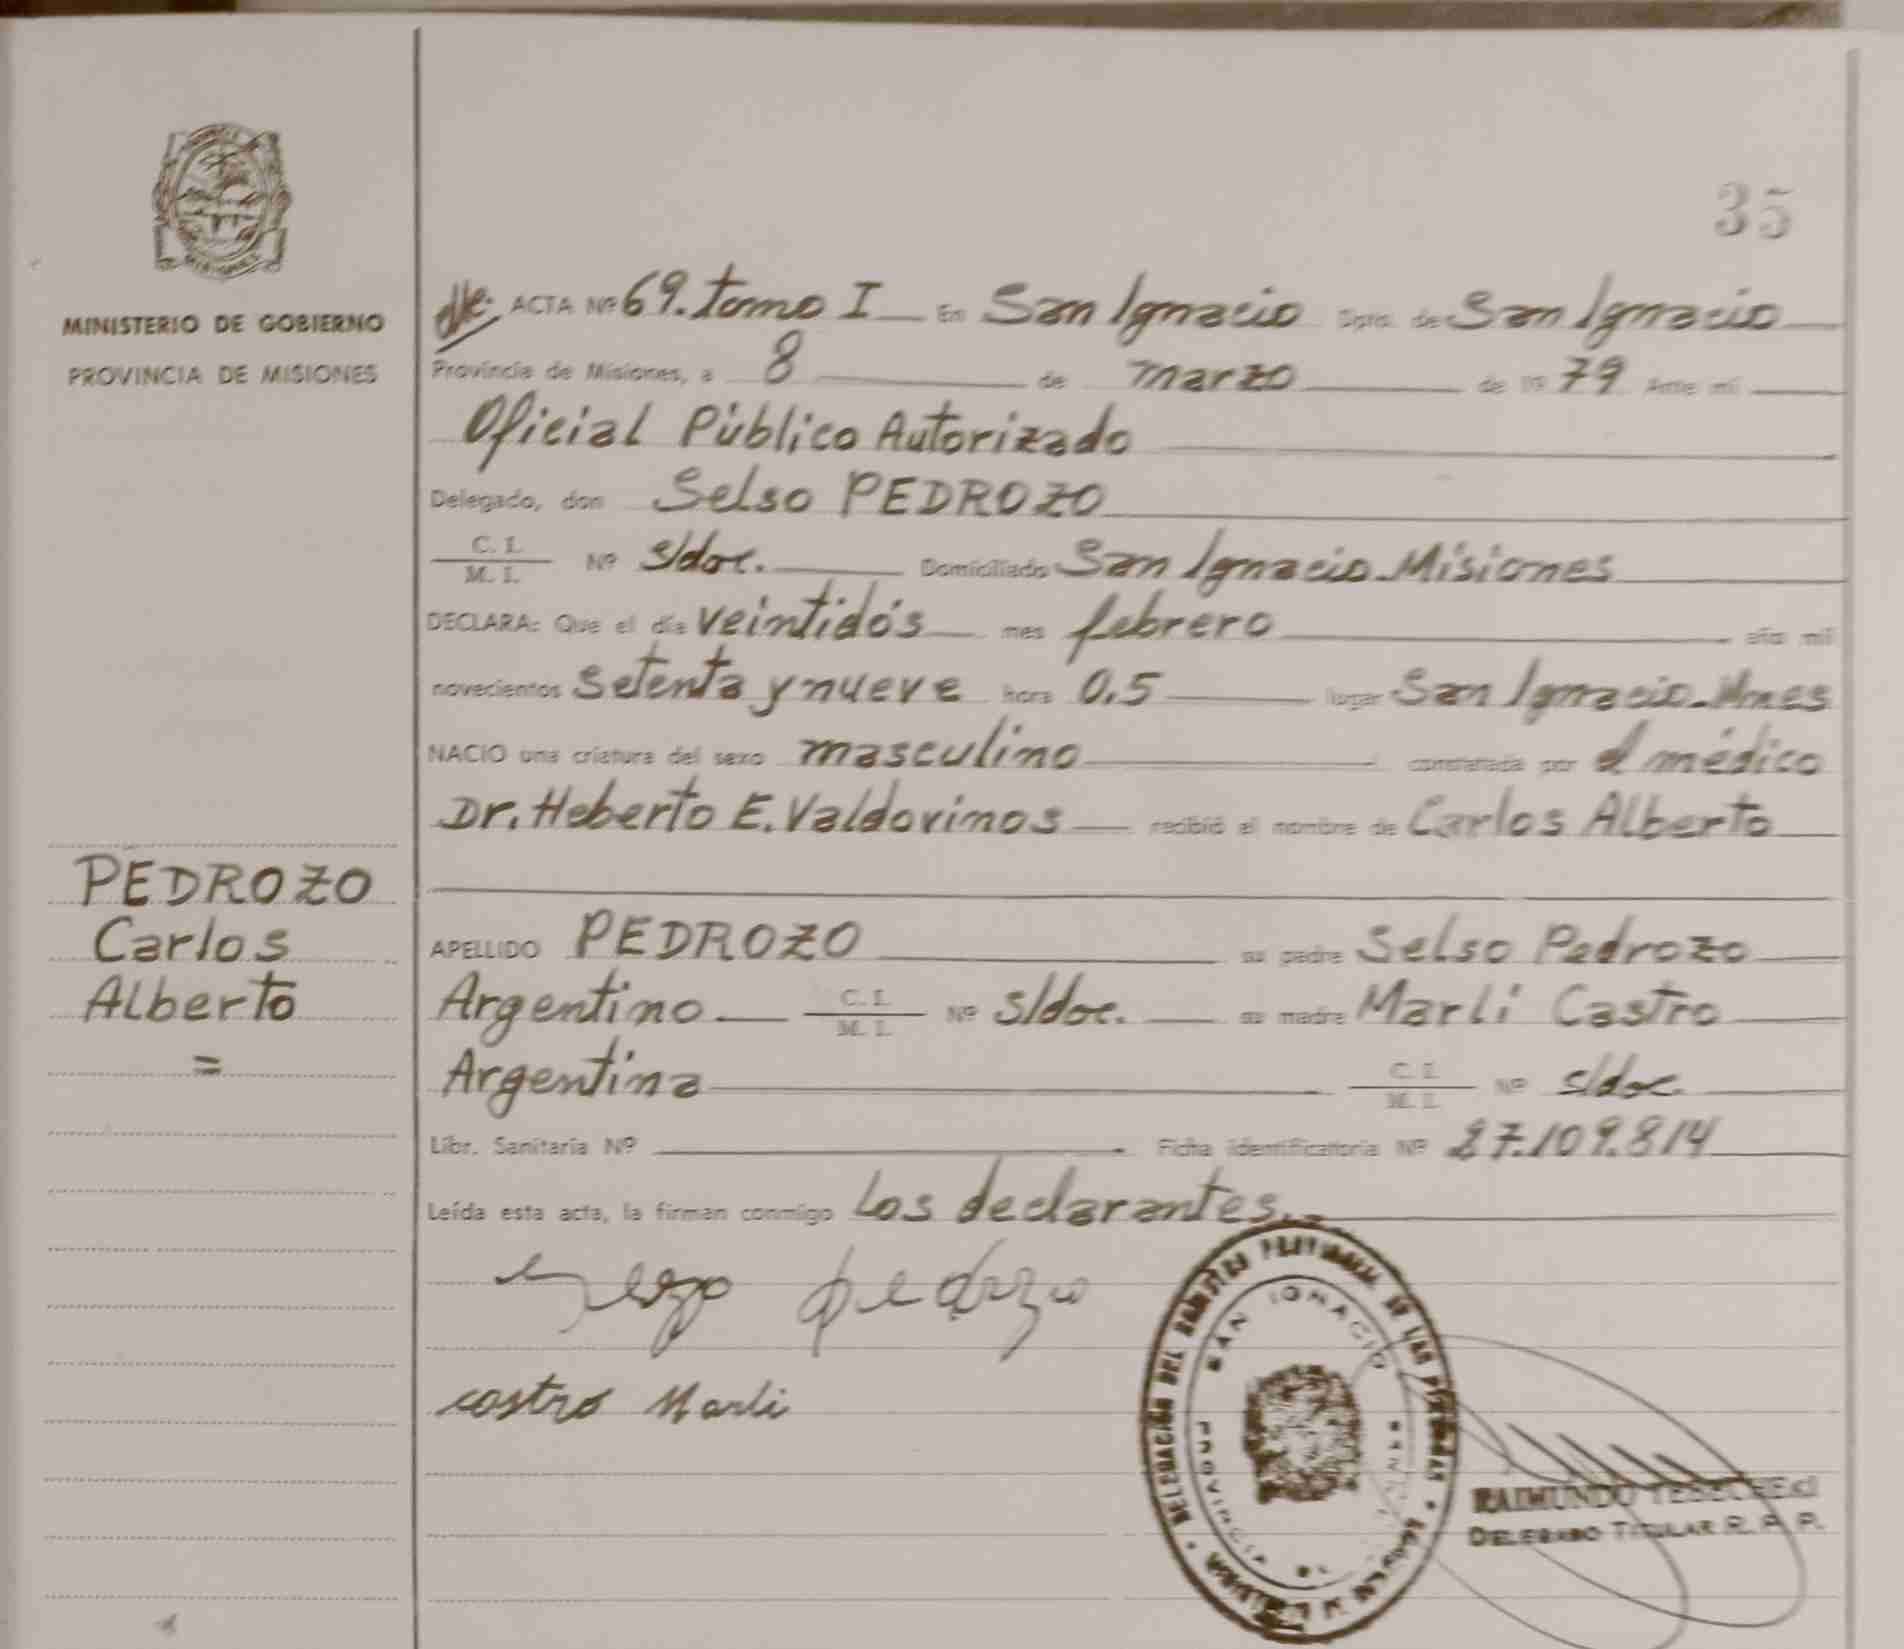 35
MINISTERIO DE GOBIERNO
PROVINCIA DE MISIONES
ACTA Nº 69. tomo I En San Ignacio Dpto. de San Ignacio
Provincia de Misiones, a 8 de marzo de 19 79 Ante mi
Oficial Público Autorizado
Delegado, don Selso PEDROZO
C. I. / M. I. Nº s/doc. Domiciliado San Ignacio-Misiones
DECLARA: Que el día veintidós mes febrero año mil
novecientos setenta y nueve hora 0,5 lugar San Ignacio-Mnes
NACIO una criatura del sexo masculino constatada por el médico
Dr. Heberto E. Valdovinos recibió el nombre de Carlos Alberto
PEDROZO
Carlos
Alberto
=
APELLIDO PEDROZO su padre Selso Pedrozo
Argentino C. I. / M. I. Nº s/doc. su madre Marli Castro
Argentina C. I. / M. I. Nº s/doc.
Libr. Sanitaria Nº Ficha identificatoria Nº 27.109.814
Leída esta acta, la firman conmigo los declarantes.
castro Marli
DELEGACIÓN DEL REGISTRO PROVINCIAL DE LAS PERSONAS
SAN IGNACIO
PROVINCIA DE
RAIMUNDO
DELEGADO TITULAR R. P. P.